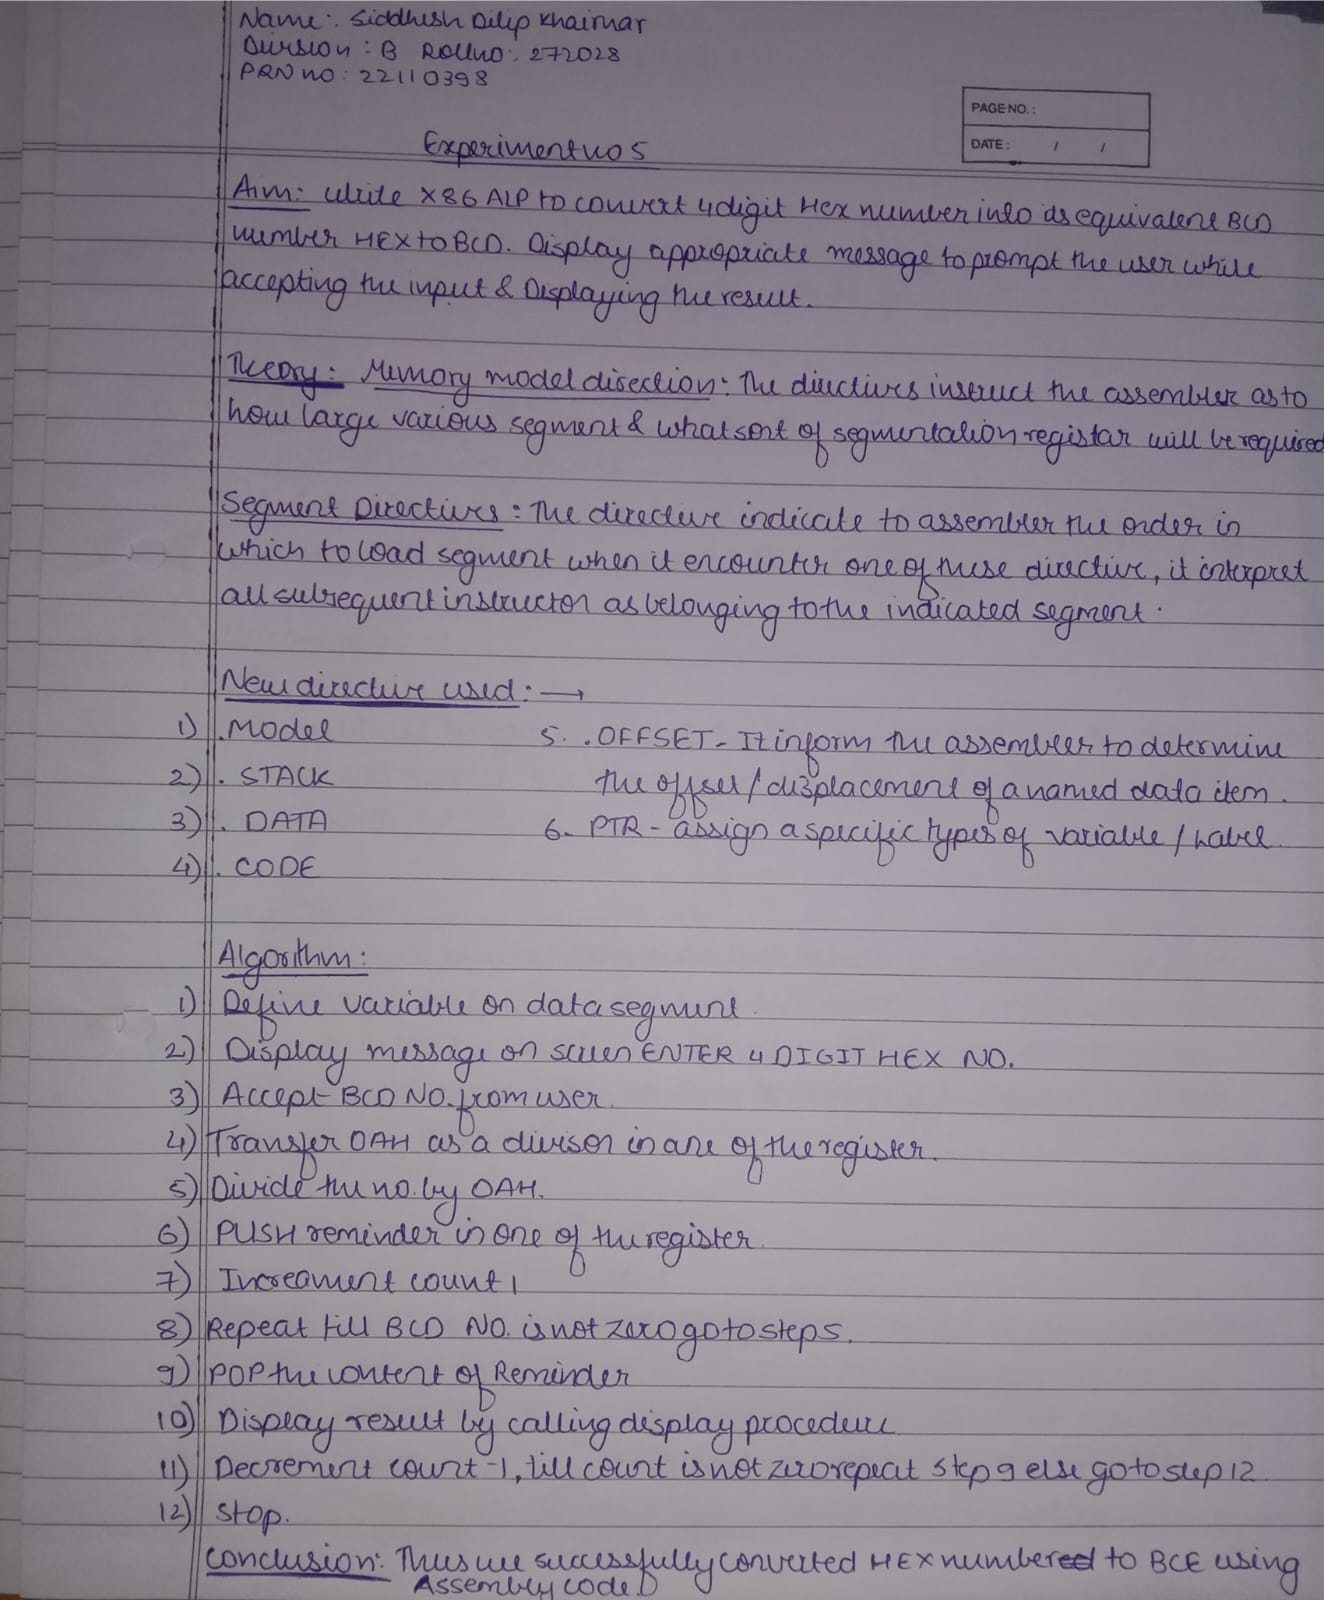 Name: Siddhesh Dilip Khairnar
Division: B Rollno: 272028
PRN no: 22110398
PAGE NO.:
DATE: / /
Experiment no 5
Aim: Write X86 ALP to convert 4 digit Hex number into its equivalent BCD
number HEX to BCD. Display appropriate message to prompt the user while
accepting the input & Displaying the result.
Theory: Memory model disection: The directives instruct the assembler as to
how large various segment & what sort of segmentation registar will be required
Segment Directives: The directive indicate to assembler the order in
which to load segment when it encounter one of these directive, it interpret
all subsequent instructon as belonging to the indicated segment.
New directive used: →
1) .Model
2) . STACK
3) . DATA
4) . CODE
5. .OFFSET - It inform the assembler to determine
the offset / displacement of a named data item.
6. PTR - assign a specific types of variable / Label.
Algorithm:
1) Define variable on data segment.
2) Display message on screen ENTER 4 DIGIT HEX NO.
3) Accept BCD NO. from user.
4) Transfer 0AH as a divison in one of the register.
5) Divide the no. by 0AH.
6) PUSH reminder in one of the register.
7) Increament count 1
8) Repeat till BCD NO. is not zero go to step 5.
9) POP the content of Reminder
10) Display result by calling display procedure
11) Decrement count -1, till count is not zero repeat step 9 else go to step 12
12) Stop.
Conclusion: Thus we successfully converted HEX numbered to BCE using
Assembly code.